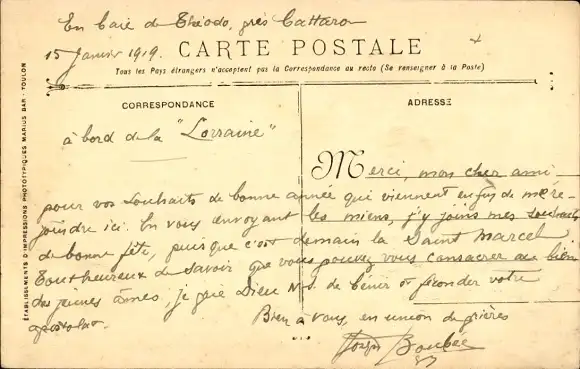 En baie de Théodo, près Cattaro
15 Janvier 1919.
CARTE POSTALE
Tous les Pays étrangers n'acceptent pas la Correspondance au recto (Se renseigner à la Poste)
CORRESPONDANCE
ADRESSE
à bord de la "Lorraine"
Merci, mon cher ami
pour vos souhaits de bonne année qui viennent enfin de me re-
joindre ici. En vous envoyant les miens, j'y joins mes souhaits
de bonne fête, puisque c'est demain la Saint Marcel
Tout heureux de savoir que vous pouvez vous consacrer au bien
des jeunes âmes, je prie Dieu N. S. de bénir et féconder votre
apostolat.
Bien à vous, en union de prières
Joseph Boubée
ÉTABLISSEMENTS D'IMPRESSIONS PHOTOTYPIQUES MARIUS BAR - TOULON